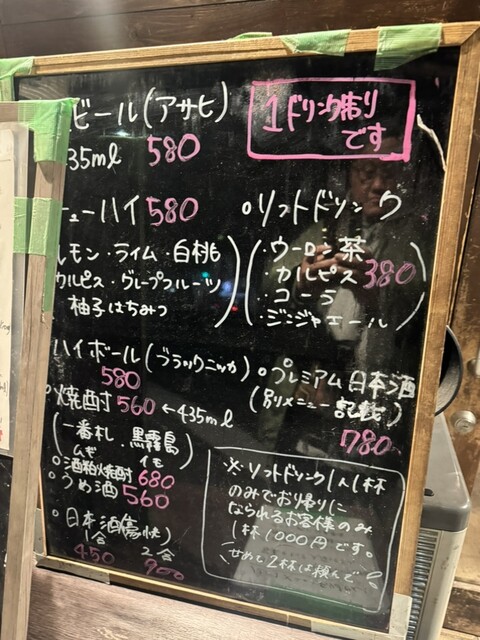 ビール(アサヒ)
435ml 580
1ドリンク制り
です
チューハイ 580
レモン・ライム・白桃
カルピス・グレープフルーツ
柚子はちみつ
ソフトドリンク
・ウーロン茶
・カルピス 380
・コーラ
・ジンジャエール
ハイボール(ブラックニッカ)
580
焼酎 560 ←435ml
(一番札・黒霧島)
ムギ イモ
酒粕焼酎 680
うめ酒 560
日本酒(燗・快)
1合 2合
450 900
プレミアム日本酒
(別メニュー記載)
780
※ソフトドリンク1人1杯
のみでお帰りに
なられるお客様のみ
1杯1000円です。
せめて2杯は頼んで